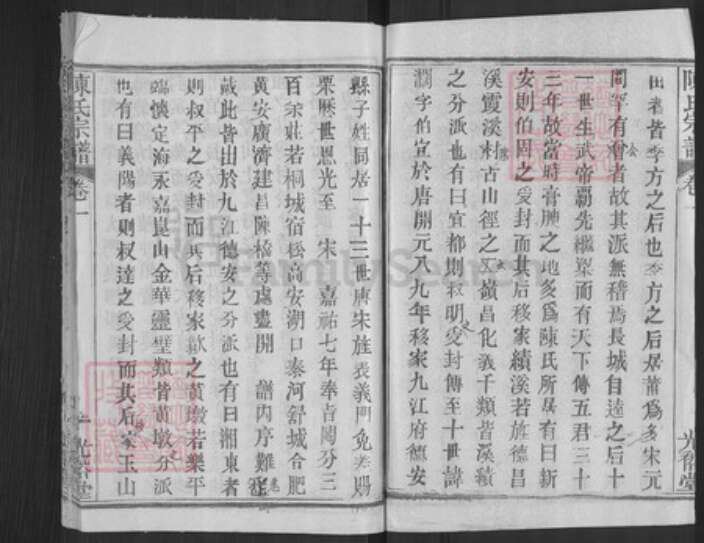 田者皆季方之后也季方之后居莆爲多宋元
間罕有會者故其派無稽焉長城自達之后十
一世生武帝覇先繼梁而有天下傳五君三十
三年故當時膏腴之地多爲陳氏所居有曰新
安則伯固之受封而其后移家績溪若旌德昌
溪霞溪村古山徑之嶺昌化義千類皆溪績
之分派也有曰宜都則叔明受封傳至十世諱
灌字伯宣於唐開元八九年移家九江府德安
縣子姓同居一十三世唐宋旌表義門免差賜
粟歷世恩光至 宋 嘉祐七年奉旨開分三
百余莊若桐城宿松高安湖口泰河舒城合肥
黃安廣濟建昌陳橋等處盡開 譜內序難
載此皆出於九江德安之分派也有曰湘東者
則叔平之受封而其后移家歙之黃墩若樂平
臨懷定海永嘉崑山金華靈璧類皆黃墩分派
也有曰義陽者則叔達之受封而其后家玉山
陳氏宗譜
卷一
一
光裕堂
陳氏宗譜
卷一
光裕堂
FamilySearch